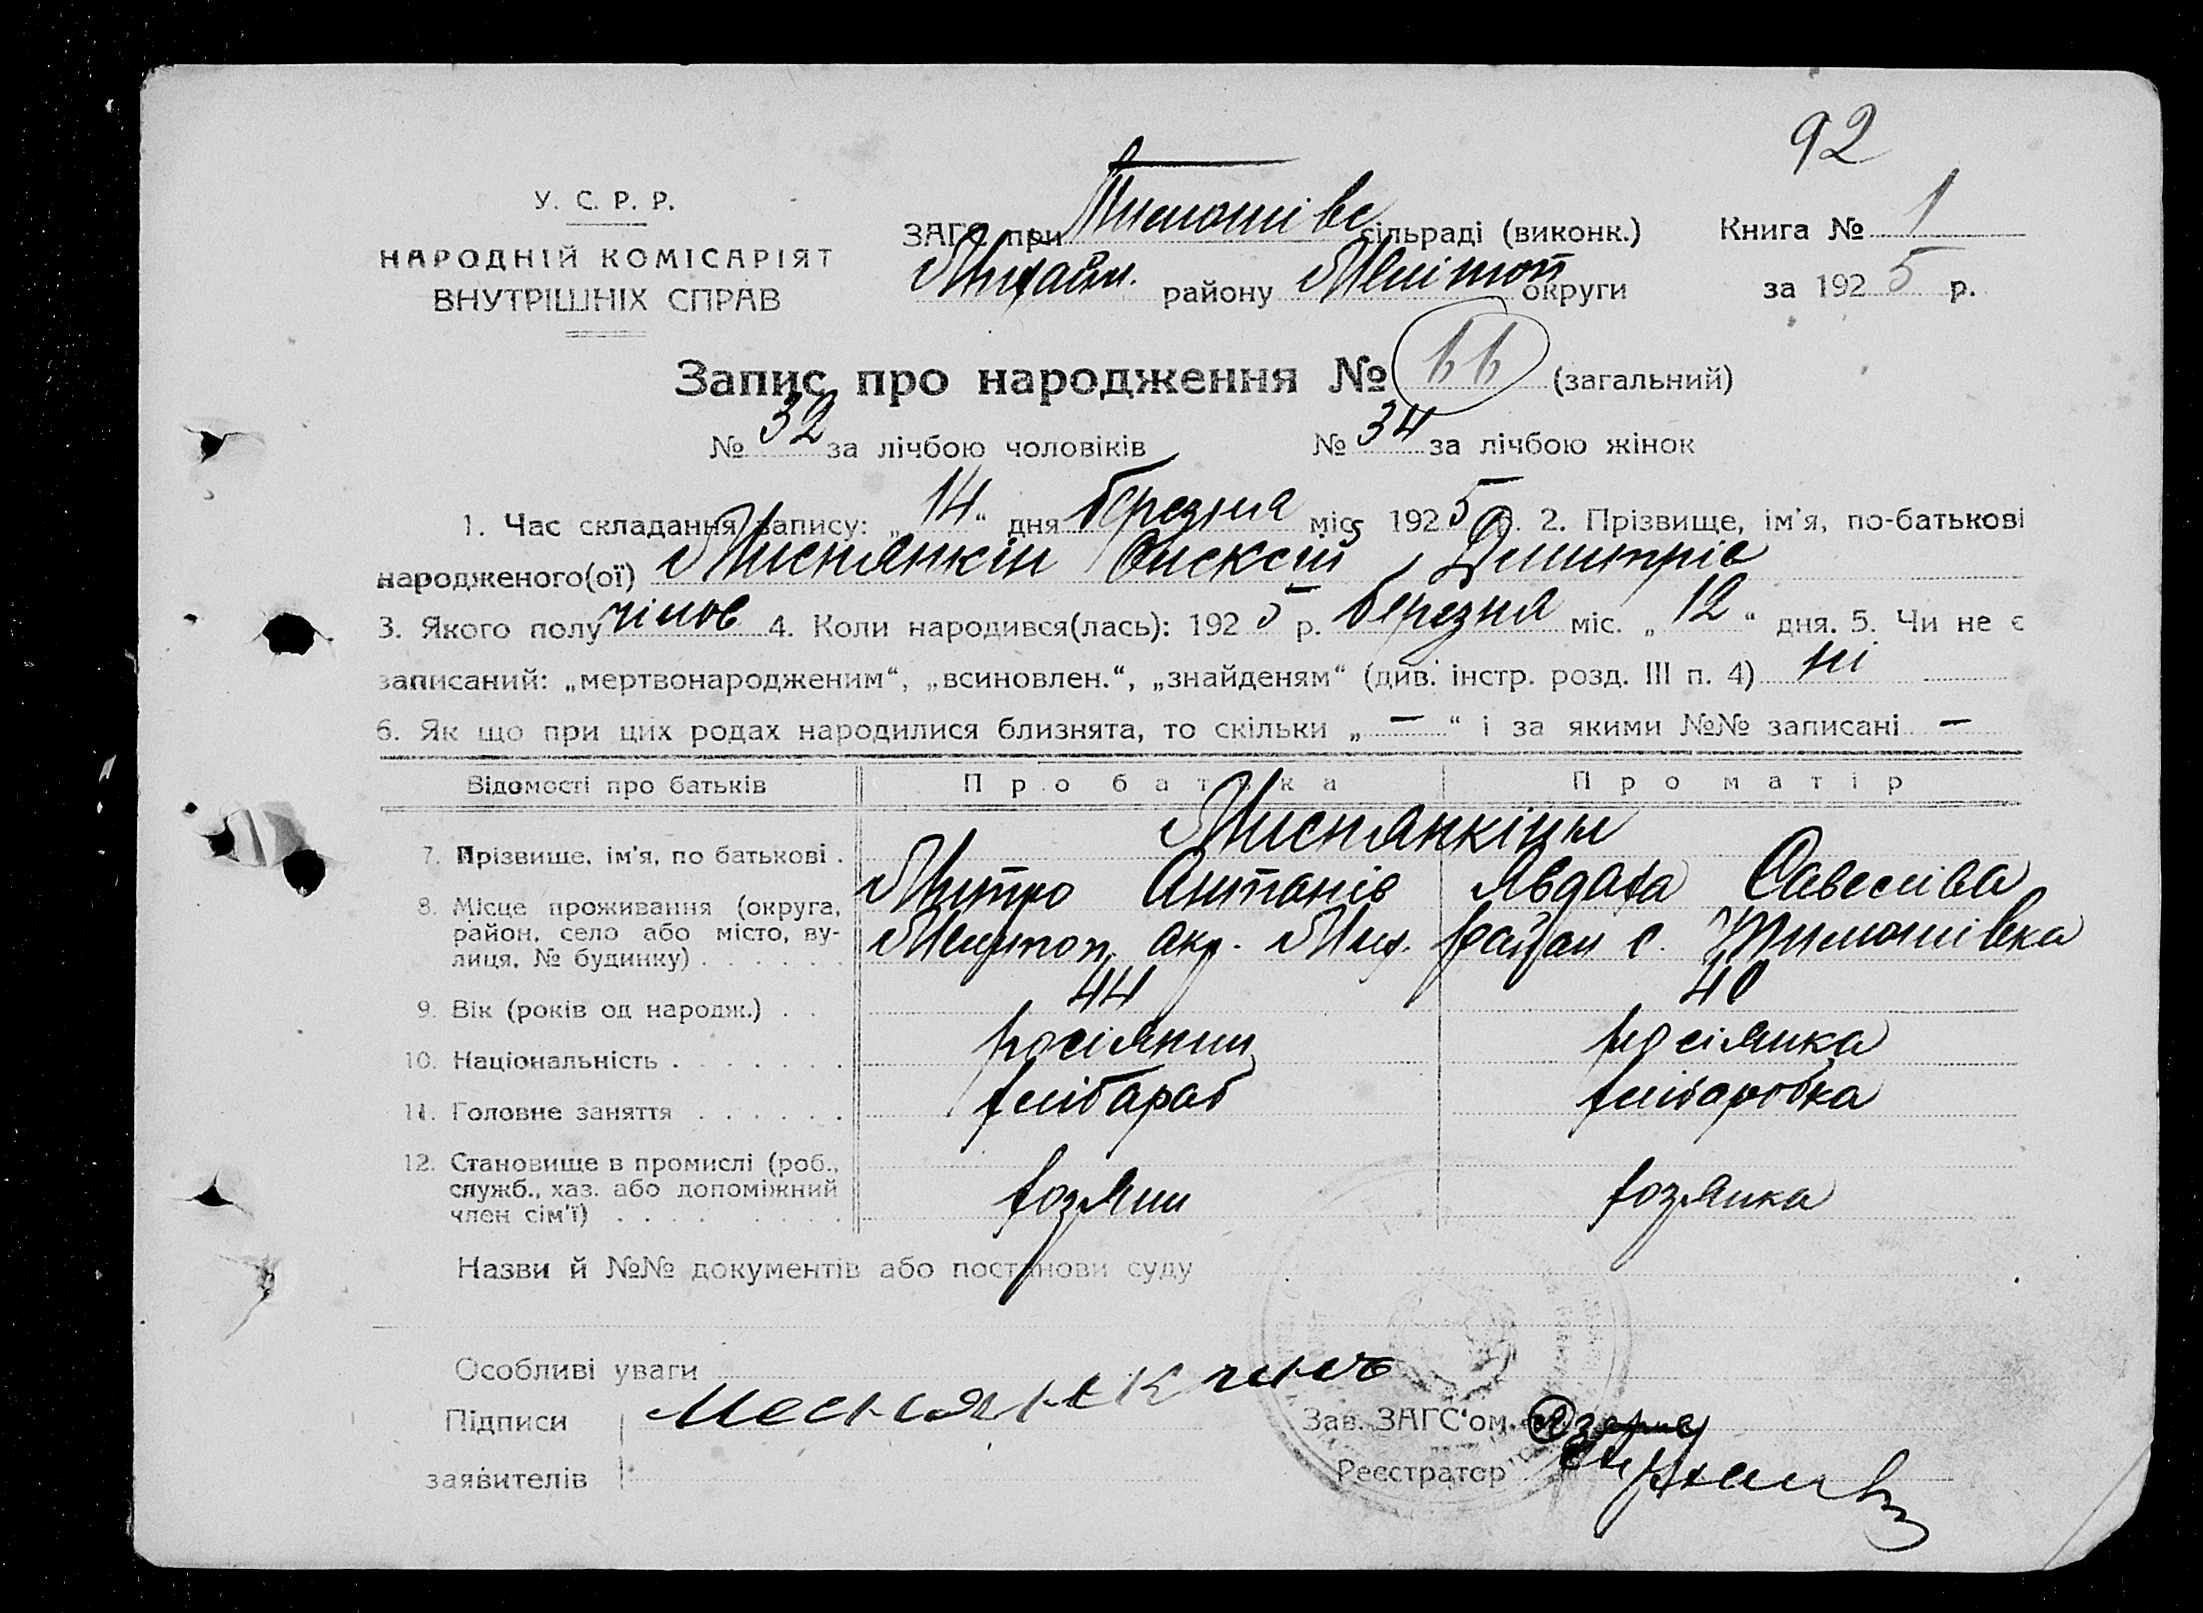 92
У. С. Р. Р.
НАРОДНІЙ КОМІСАРІЯТ
ВНУТРІШНІХ СПРАВ
ЗАГС при Тимошівс сільраді (виконк.) Книга № 1
Михайл. району Мелітоп округи за 1925 р.
Запис про народження № 66 (загальний)
№ 32 за лічбою чоловіків № 34 за лічбою жінок
1. Час складання запису: „14“ дня березня міс. 1925 р. 2. Прізвище, ім'я, по-батькові
народженого(ої) Миснянкін Олексій Дмитрів
3. Якого полу чілов 4. Коли народився(лась): 1925 р. березня міс. „12“ дня. 5. Чи не є
записаний: „мертвонародженим“, „всиновлен.“, „знайденям“ (див. інстр. розд. III п. 4) ні
6. Як що при цих родах народилися близнята, то скільки „—“ і за якими №№ записані —
Відомості про батьків Про батька Про матір
Миснянкіни
7. Прізвище, ім'я, по батькові . Митро Антонів Явдоха Савеліва
8. Місце проживання (округа, район, село або місто, вулиця, № будинку) . . . . . . Мелітоп. окр. Мих. район с. Тимошівка
9. Вік (років од народж.) . . 44 40
10. Національність . . . . . . . росіянин росіянка
11. Головне заняття . . . . . . хліbороб хліборобка
12. Становище в промислі (роб., служб., хаз. або допоміжний член сім'ї) . . . . . . . . . хозяин хозяика
Назви й №№ документів або постанови суду
Особливі уваги
Підписи Меснянкинъ Зав. ЗАГС'ом
заявителів Реєстратор